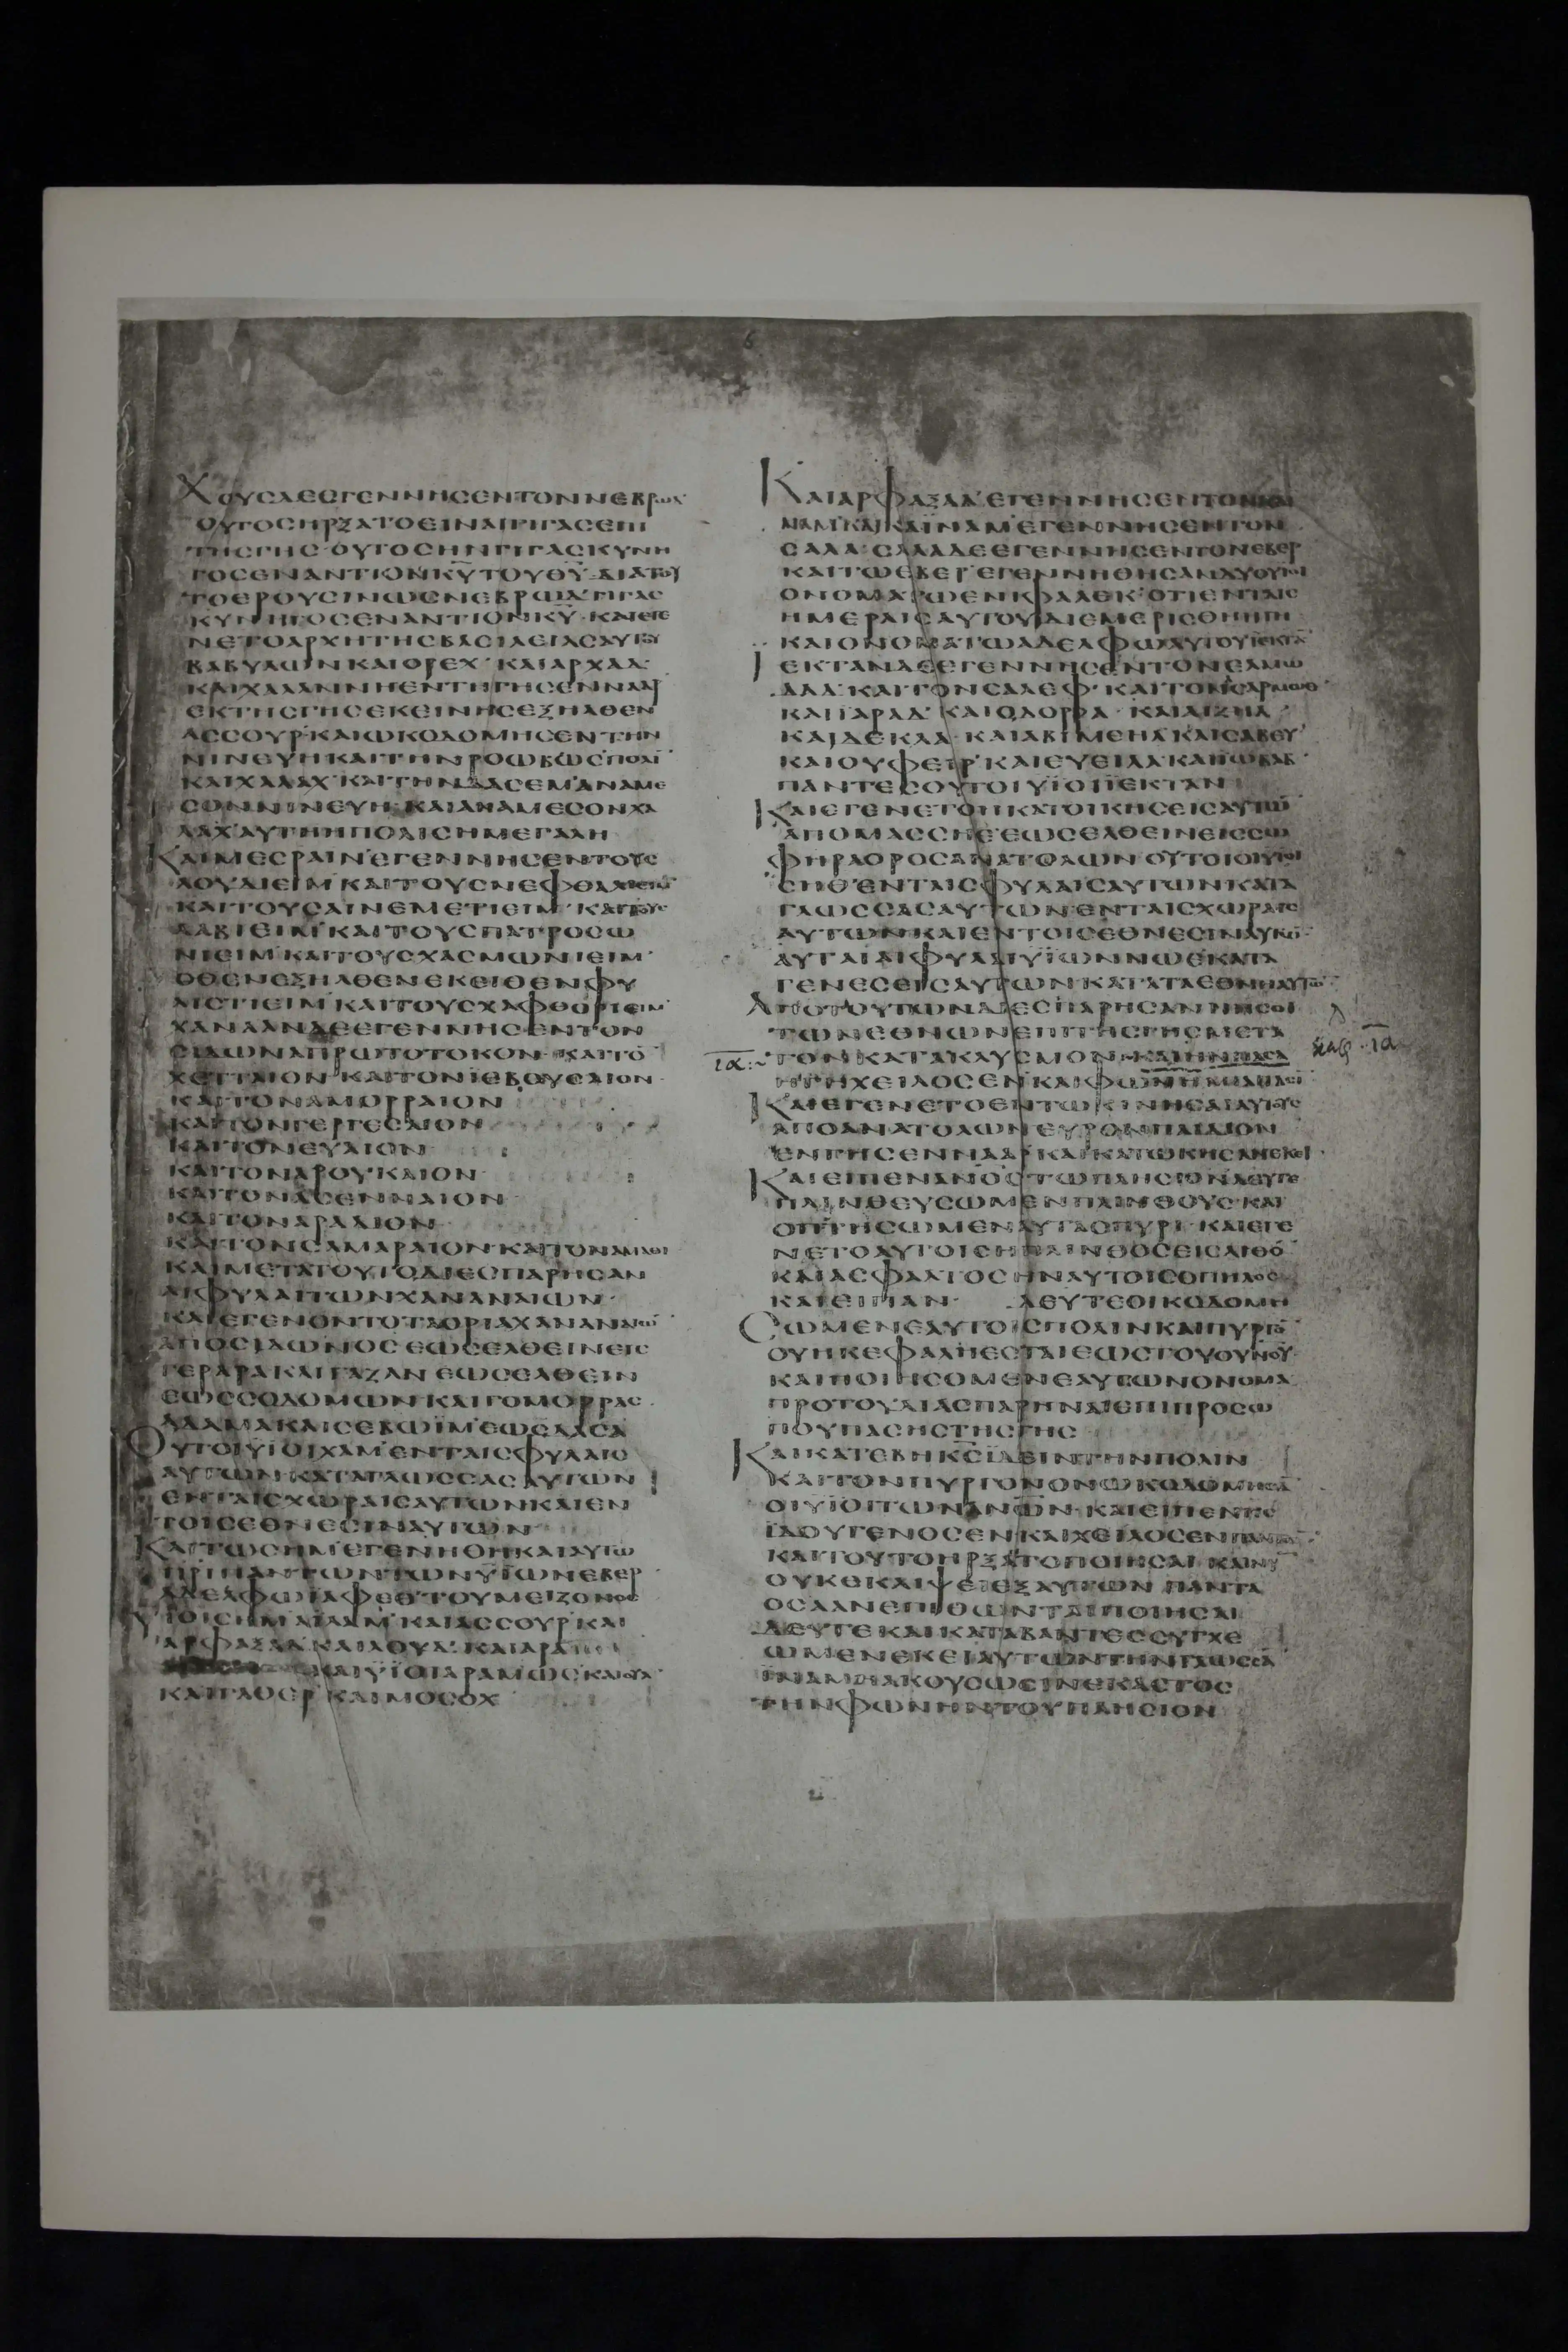 ΧΟΥΣΔΕΕΓΕΝΝΗΣΕΝΤΟΝΝΕΒΡΩΔ
ΟΥΤΟΣΗΡΞΑΤΟΕΙΝΑΙΓΙΓΑΣΕΠΙ
ΤΗΣΓΗΣ·ΟΥΤΟΣΗΝΓΙΓΑΣΚΥΝΗ
ΓΟΣΕΝΑΝΤΙΟΝΚΥ̅ΤΟΥΘΥ̅·ΔΙΑΤΟΥ
ΤΟΕΡΟΥΣΙΝΩΣΝΕΒΡΩΔΓΙΓΑΣ
ΚΥΝΗΓΟΣΕΝΑΝΤΙΟΝΚΥ̅·ΚΑΙΕΓΕ
ΝΕΤΟΑΡΧΗΤΗΣΒΑΣΙΛΕΙΑΣΑΥΤΟΥ
ΒΑΒΥΛΩΝΚΑΙΟΡΕΧ·ΚΑΙΑΡΧΑΔ·
ΚΑΙΧΑΛΑΝΝΗΕΝΤΗΓΗΣΕΝΝΑΑΡ
ΕΚΤΗΣΓΗΣΕΚΕΙΝΗΣΕΞΗΛΘΕΝ
ΑΣΣΟΥΡ·ΚΑΙΩΚΟΔΟΜΗΣΕΝΤΗΝ
ΝΙΝΕΥΗΚΑΙΤΗΝΡΟΩΒΩΣΠΟΛΙ̅
ΚΑΙΧΑΛΑΧ·ΚΑΙΤΗΝΔΑΣΕΜΑΝΑΜΕ
ΣΟΝΝΙΝΕΥΗ·ΚΑΙΑΝΑΜΕΣΟΝΧΑ
ΛΑΧ·ΑΥΤΗΗΠΟΛΙΣΗΜΕΓΑΛΗ
ΚΑΙΜΕΣΡΑΙΝΕΓΕΝΝΗΣΕΝΤΟΥΣ
ΛΟΥΔΙΕΙΜ·ΚΑΙΤΟΥΣΝΕΦΘΑΛΙΕΙΜ
ΚΑΙΤΟΥΣΑΙΝΕΜΕΤΙΕΙΜ·ΚΑΙΤΟΥΣ
ΛΑΒΙΕΙΜ·ΚΑΙΤΟΥΣΠΑΤΡΟΣΩ
ΝΙΕΙΜ·ΚΑΙΤΟΥΣΧΑΣΜΩΝΙΕΙΜ·
ΟΘΕΝΕΞΗΛΘΕΝΕΚΕΙΘΕΝΦΥ
ΛΙΣΤΙΕΙΜ·ΚΑΙΤΟΥΣΧΑΦΘΟΡΙΕΙΜ·
ΧΑΝΑΑΝΔΕΕΓΕΝΝΗΣΕΝΤΟΝ
ΣΙΔΩΝΑΠΡΩΤΟΤΟΚΟΝ·ΚΑΙΤΟ̅
ΧΕΤΤΑΙΟΝ·ΚΑΙΤΟΝΙΕΒΟΥΣΑΙΟΝ·
ΚΑΙΤΟΝΑΜΟΡΡΑΙΟΝ
ΚΑΙΤΟΝΓΕΡΓΕΣΑΙΟΝ
ΚΑΙΤΟΝΕΥΑΙΟΝ
ΚΑΙΤΟΝΑΡΟΥΚΑΙΟΝ
ΚΑΙΤΟΝΑΣΕΝΝΑΙΟΝ
ΚΑΙΤΟΝΑΡΑΔΙΟΝ
ΚΑΙΤΟΝΣΑΜΑΡΑΙΟΝ·ΚΑΙΤΟΝΑΜΑΘΙ
ΚΑΙΜΕΤΑΤΟΥΤΟΔΙΕΣΠΑΡΗΣΑΝ
ΑΙΦΥΛΑΙΤΩΝΧΑΝΑΝΑΙΩΝ·
ΚΑΙΕΓΕΝΟΝΤΟΤΑΟΡΙΑΧΑΝΑΝΑΙΩ̅
ΑΠΟΣΙΔΩΝΟΣΕΩΣΕΛΘΕΙΝΕΙΣ
ΓΕΡΑΡΑΚΑΙΓΑΖΑΝΕΩΣΕΛΘΕΙΝ
ΕΩΣΣΟΔΟΜΩΝΚΑΙΓΟΜΟΡΡΑΣ·
ΑΔΑΜΑΚΑΙΣΕΒΩΙΜ·ΕΩΣΔΑΣΑ
ΟΥΤΟΙΥΪΟΙΧΑΜ·ΕΝΤΑΙΣΦΥΛΑΙΣ
ΑΥΤΩΝ·ΚΑΤΑΓΛΩΣΣΑΣΑΥΤΩΝ
ΕΝΤΑΙΣΧΩΡΑΙΣΑΥΤΩΝΚΑΙΕΝ
ΤΟΙΣΕΘΝΕΣΙΝΑΥΤΩΝ
ΚΑΙΤΩΣΗΜ·ΕΓΕΝΗΘΗΚΑΙΑΥΤΩ
ΠΡΙΠΑΝΤΩΝΤΩΝΥΪΩΝΕΒΕΡ
ΑΔΕΛΦΩΪΑΦΕΘ·ΤΟΥΜΕΙΖΟΝΟΣ
ΥΪΟΙΣΗΜ·ΑΙΛΑΜ·ΚΑΙΑΣΣΟΥΡ·ΚΑΙ
ΑΡΦΑΞΑΔ·ΚΑΙΛΟΥΔ·ΚΑΙΑΡΑ
ΚΑΙΥΪΟΙΑΡΑΜ·ΩΣ·ΚΑΙΟΥΛ·
ΚΑΙΓΑΘΕΡ·ΚΑΙΜΟΣΟΧ
ΚΑΙΑΡΦΑΞΑΔ·ΕΓΕΝΝΗΣΕΝΤΟΝΚΑΙ
ΝΑΜ·ΚΑΙΚΑΙΝΑΜ·ΕΓΕΝΝΗΣΕΝΤΟΝ
ΣΑΛΑ·ΣΑΛΑΔΕΕΓΕΝΝΗΣΕΝΤΟΝΕΒΕΡ
ΚΑΙΤΩΕΒΕΡ·ΕΓΕΝΝΗΘΗΣΑΝΔΥΟΥΪΟΙ
ΟΝΟΜΑΤΩΕΝΙΦΑΛΕΚ·ΟΤΙΕΝΤΑΙΣ
ΗΜΕΡΑΙΣΑΥΤΟΥΔΙΕΜΕΡΙΣΘΗΗΓΗ
ΚΑΙΟΝΟΜΑΤΩΑΔΕΛΦΩΑΥΤΟΥΪΕΚΤΑ̅
ΙΕΚΤΑΝΔΕΕΓΕΝΝΗΣΕΝΤΟΝΕΛΜΩ
ΔΑΔ·ΚΑΙΤΟΝΣΑΛΕΦ·ΚΑΙΤΟΝΑΣΑΡΜΩΘ
ΚΑΙΪΑΡΑΔ·ΚΑΙΟΔΟΡΡΑ·ΚΑΙΑΙΖΗΛ·
ΚΑΙΔΕΚΛΑ·ΚΑΙΑΒΙΜΕΗΛ·ΚΑΙΣΑΒΕΥ·
ΚΑΙΟΥΦΕΙΡ·ΚΑΙΕΥΕΙΛΑ·ΚΑΙΪΩΒΑΒ·
ΠΑΝΤΕΣΟΥΤΟΙΥΪΟΙΪΕΚΤΑΝ
ΚΑΙΕΓΕΝΕΤΟΗΚΑΤΟΙΚΗΣΕΙΣΑΥΤΩ̅
ΑΠΟΜΑΣΣΗΕ·ΕΩΣΕΛΘΕΙΝΕΙΣΣΩ
ΦΗΡΑΟΡΟΣΑΝΑΤΟΛΩΝ·ΟΥΤΟΙΟΙΥΪΟΙ
ΣΗΘ·ΕΝΤΑΙΣΦΥΛΑΙΣΑΥΤΩΝΚΑΤΑ
ΓΛΩΣΣΑΣΑΥΤΩΝ·ΕΝΤΑΙΣΧΩΡΑΙΣ
ΑΥΤΩΝ·ΚΑΙΕΝΤΟΙΣΕΘΝΕΣΙΝΑΥΤΩ̅·
ΑΥΤΑΙΑΙΦΥΛΑΙΥΪΩΝΝΩΕ·ΚΑΤΑ
ΓΕΝΕΣΕΙΣΑΥΤΩΝ·ΚΑΤΑΤΑΕΘΝΗΑΥΤΩ̅
ΑΠΟΤΟΥΤΩΝΔΙΕΣΠΑΡΗΣΑΝΝΗΣΟΙ
ΤΩΝΕΘΝΩΝΕΠΙΤΗΣΓΗΣΜΕΤΑ
ια ΤΟΝΚΑΤΑΚΛΥΣΜΟΝ·ΚΑΙΗΝΠΑΣΑ κεφ ια
ΗΓΗΧΕΙΛΟΣΕΝ·ΚΑΙΦΩΝΗ
ΚΑΙΕΓΕΝΕΤΟΕΝΤΩΚΙΝΗΣΑΙΑΥΤΟΥΣ
ΑΠΟΑΝΑΤΟΛΩΝΕΥΡΟΝΠΑΙΔΙΟΝ
ΕΝΓΗΣΕΝΝΑΑΡ·ΚΑΙΚΑΤΩΚΗΣΑΝΕΚΕΙ·
ΚΑΙΕΙΠΕΝΑΝΟ̅ΣΤΩΠΛΗΣΙΟΝΔΕΥΤΕ
ΠΛΙΝΘΕΥΣΩΜΕΝΠΛΙΝΘΟΥΣ·ΚΑΙ
ΟΠΤΗΣΩΜΕΝΑΥΤΑΣΠΥΡΙ·ΚΑΙΕΓΕ
ΝΕΤΟΑΥΤΟΙΣΗΠΛΙΝΘΟΣΕΙΣΛΙΘΟ̅
ΚΑΙΑΣΦΑΛΤΟΣΗΝΑΥΤΟΙΣΟΠΗΛΟΣ
ΚΑΙΕΙΠΑΝ· ΔΕΥΤΕΟΙΚΟΔΟΜΗ
ΣΩΜΕΝΕΑΥΤΟΙΣΠΟΛΙΝΚΑΙΠΥΡΓΟ̅
ΟΥΗΚΕΦΑΛΗΕΣΤΑΙΕΩΣΤΟΥΟΥΝΟΥ·
ΚΑΙΠΟΙΗΣΟΜΕΝΕΑΥΤΩΝΟΝΟΜΑ
ΠΡΟΤΟΥΔΙΑΣΠΑΡΗΝΑΙΕΠΙΠΡΟΣΩ
ΠΟΥΠΑΣΗΣΤΗΣΓΗΣ
ΚΑΙΚΑΤΕΒΗΚΣ̅ΪΔΕΙΝΤΗΝΠΟΛΙΝ
ΚΑΙΤΟΝΠΥΡΓΟΝΟΝΩΚΟΔΟΜΗΣΑ̅
ΟΙΥΪΟΙΤΩΝΑΝΩ̅Ν·ΚΑΙΕΙΠΕΝΚΣ̅
ΪΔΟΥΓΕΝΟΣΕΝ·ΚΑΙΧΕΙΛΟΣΕΝΠΑΝΤΩ̅
ΚΑΙΤΟΥΤΟΗΡΞΑΤΟΠΟΙΗΣΑΙ·ΚΑΙΝΥ̅
ΟΥΚΕΚΛΙΨΕΙΕΞΑΥΤΩΝΠΑΝΤΑ
ΟΣΑΑΝΕΠΙΘΩΝΤΑΙΠΟΙΗΣΑΙ
ΔΕΥΤΕΚΑΙΚΑΤΑΒΑΝΤΕΣΣΥΓΧΕ
ΩΜΕΝΕΚΕΙΑΥΤΩΝΤΗΝΓΛΩΣΣΑ̅
ΪΝΑΜΗΑΚΟΥΣΩΣΙΝΕΚΑΣΤΟΣ
ΤΗΝΦΩΝΗΝΤΟΥΠΛΗΣΙΟΝ